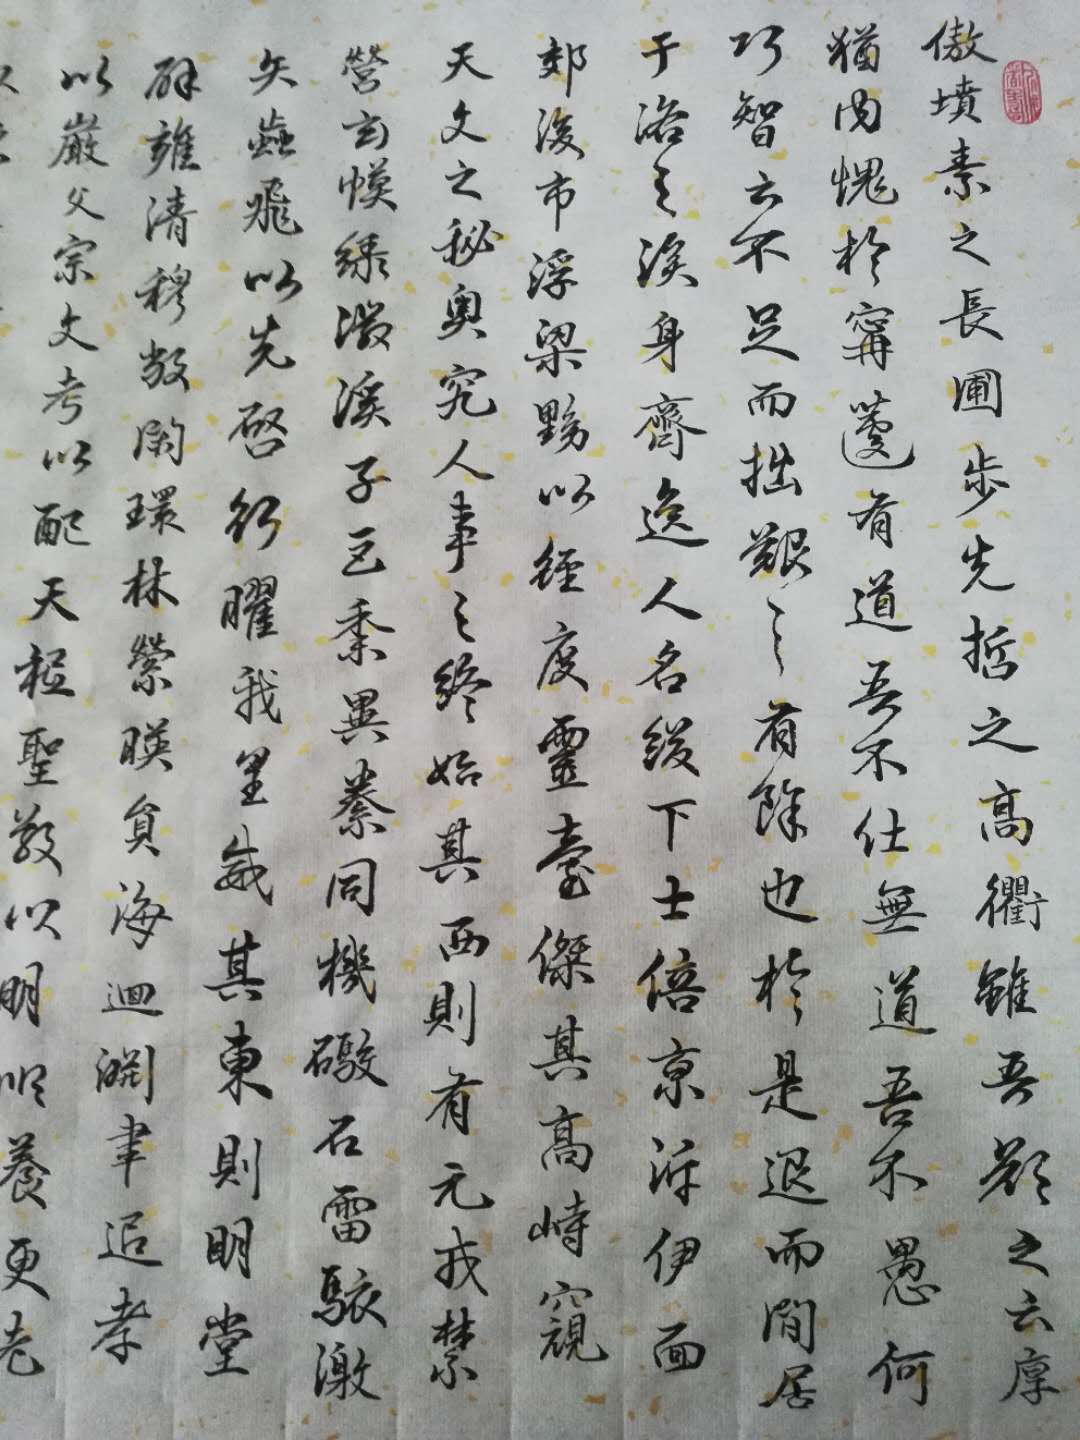 傲墳素之長圃步先哲之高衢雖吾顏之云厚
猶內愧於甯蘧有道吾不仕無道吾不愚何
巧智之不足而拙艱之有餘也於是退而閒居
于洛之涘身齊逸人名綴下士倍京泝伊面
郊後市浮梁黝以經度靈臺傑其高峙窺
天文之秘奧究人事之終始其西則有元戎禁
營玄幙綠徽溪子巨黍異絭同機礮石雷駭激
矢蝱飛以先啓行曜我皇威其東則明堂
辟雍清穆敞閑環林縈暎員海迴淵聿追孝
以嚴父宗文考以配天祗聖敬以明順養更老